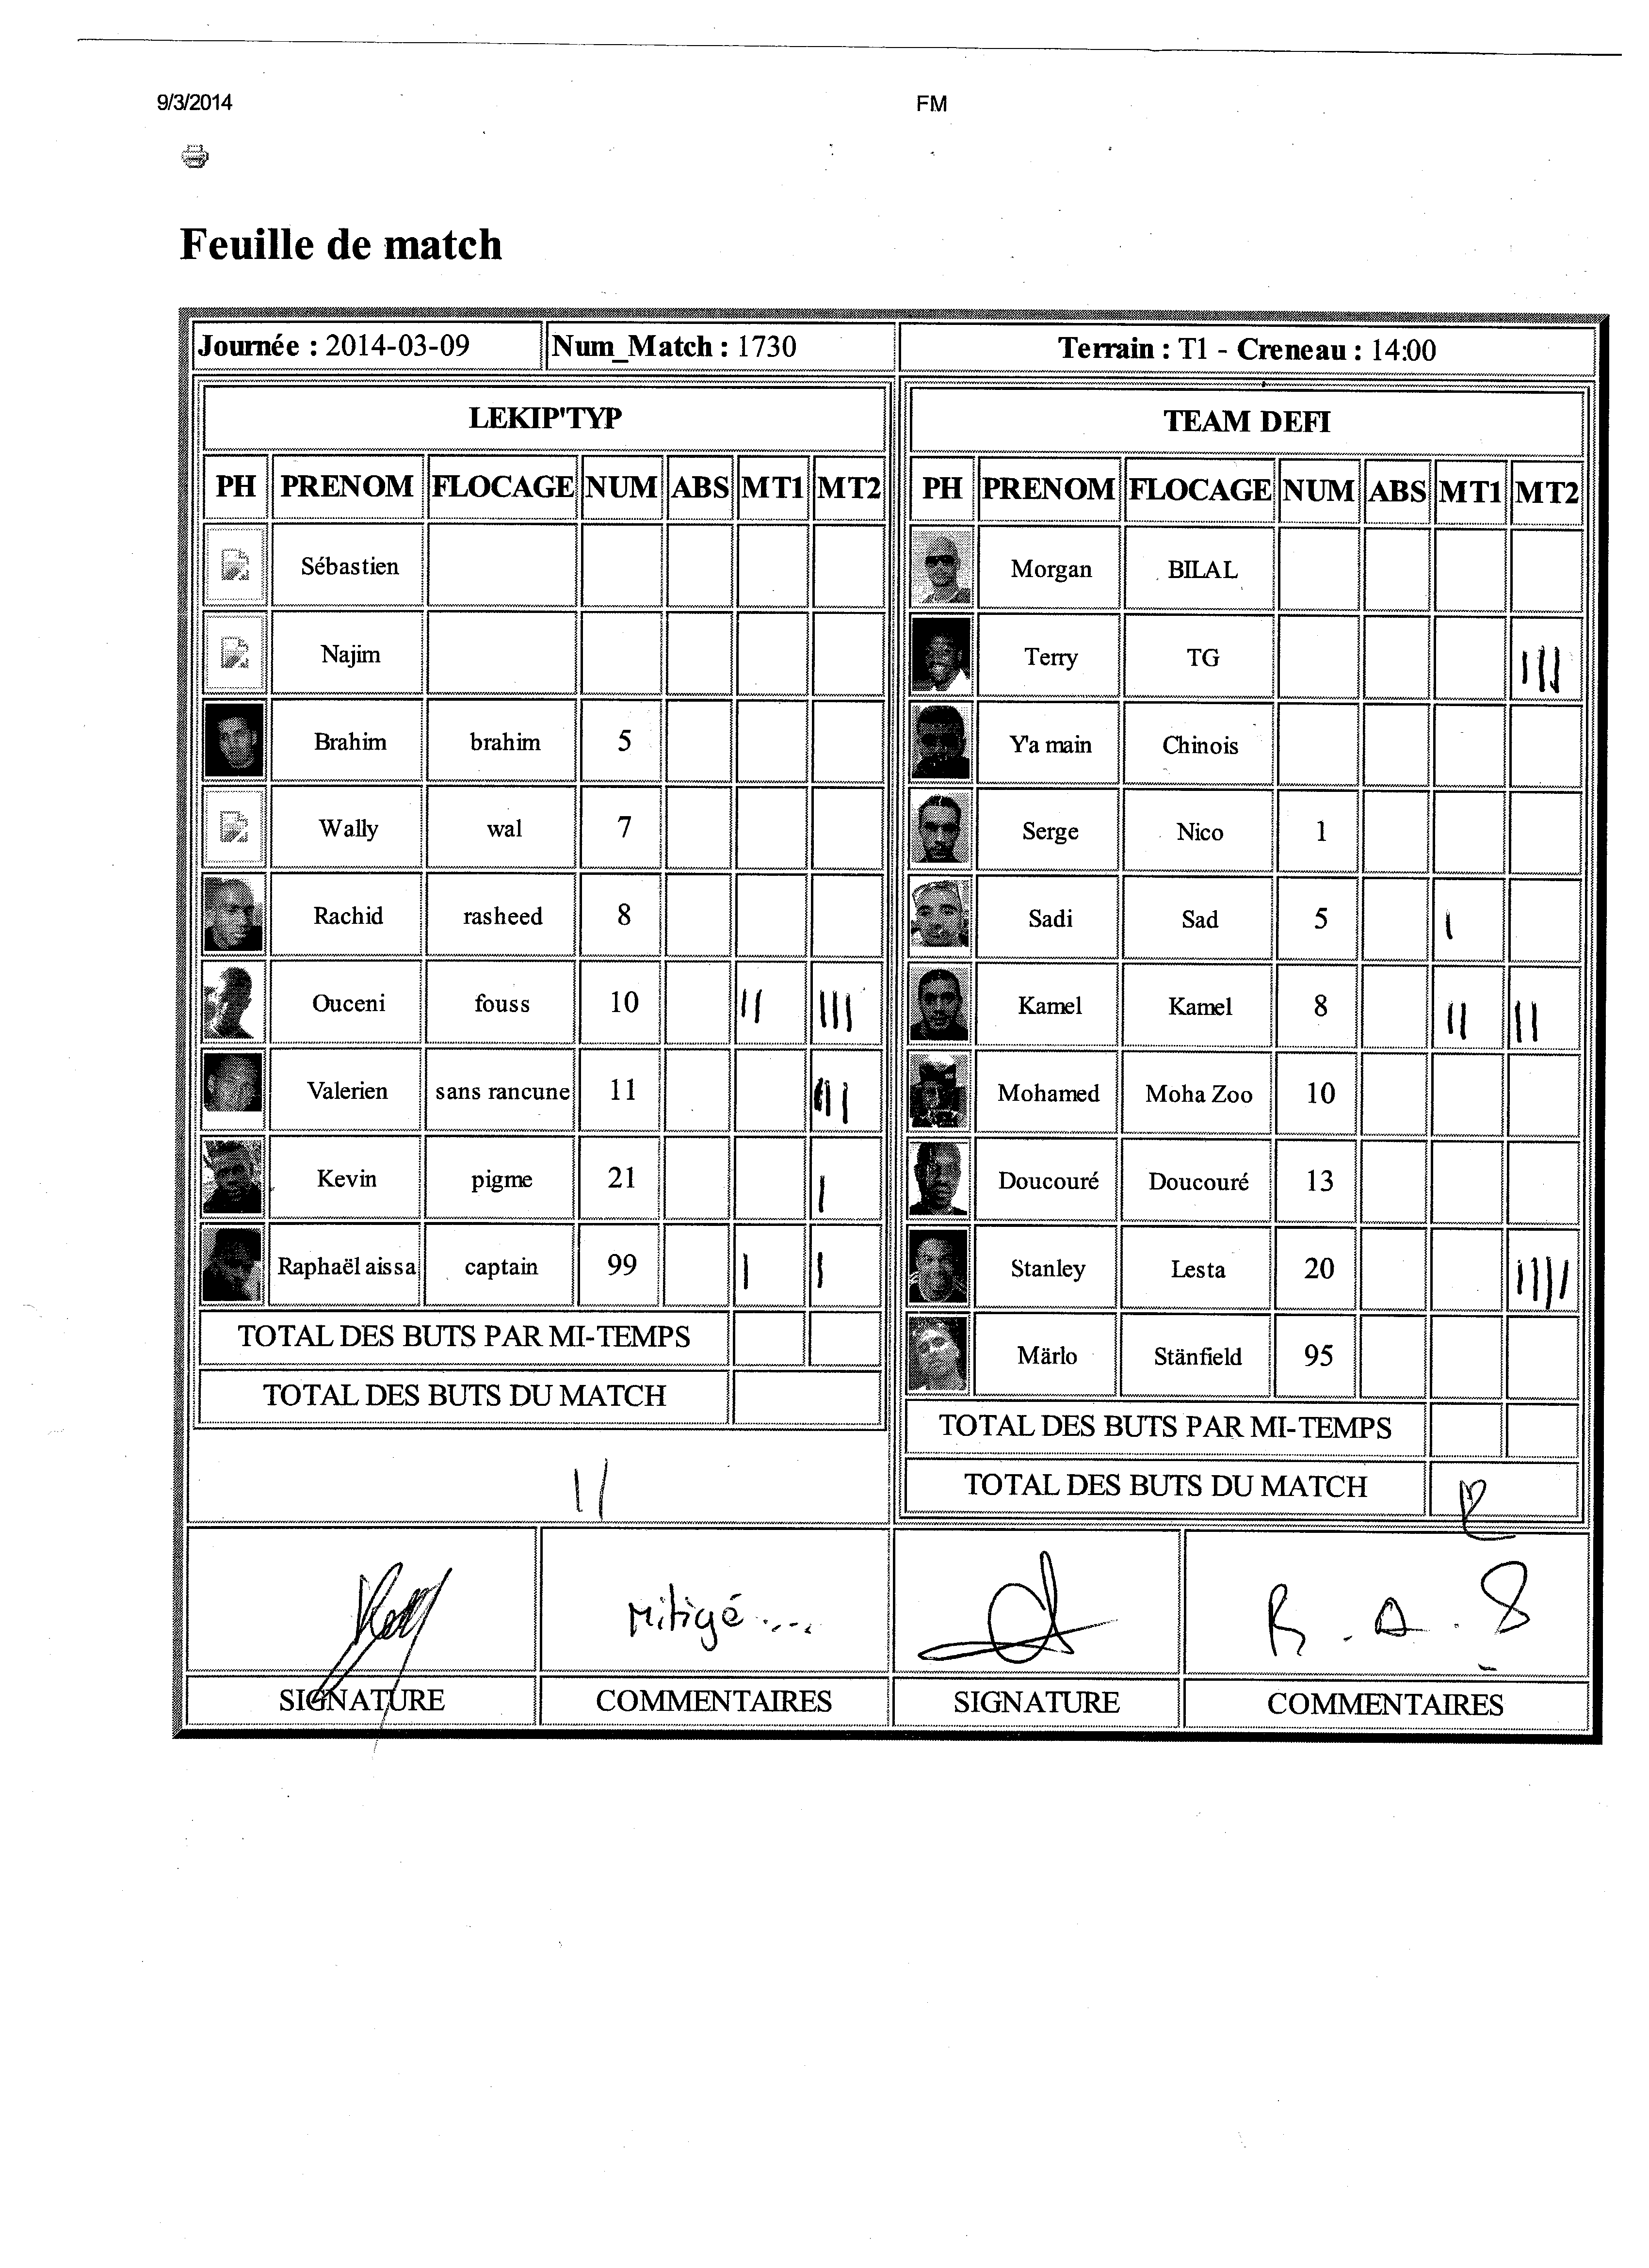 9/3/2014 FM
Feuille de match
Journée : 2014-03-09 Num_Match : 1730 Terrain : T1 - Creneau : 14:00
LEKIP'TYP
PH PRENOM FLOCAGE NUM ABS MT1 MT2
Sébastien
Najim
Brahim brahim 5
Wally wal 7
Rachid rasheed 8
Ouceni fouss 10 || |||
Valerien sans rancune 11
Kevin pigme 21 |
Raphaël aissa captain 99 | |
TOTAL DES BUTS PAR MI-TEMPS
TOTAL DES BUTS DU MATCH
11
TEAM DEFI
PH PRENOM FLOCAGE NUM ABS MT1 MT2
Morgan BILAL
Terry TG |||
Y'a main Chinois
Serge Nico 1
Sadi Sad 5 |
Kamel Kamel 8 || ||
Mohamed Moha Zoo 10
Doucouré Doucouré 13
Stanley Lesta 20 ||||
Märlo Stänfield 95
TOTAL DES BUTS PAR MI-TEMPS
TOTAL DES BUTS DU MATCH
Mitigé.... R.A.S
SIGNATURE COMMENTAIRES SIGNATURE COMMENTAIRES